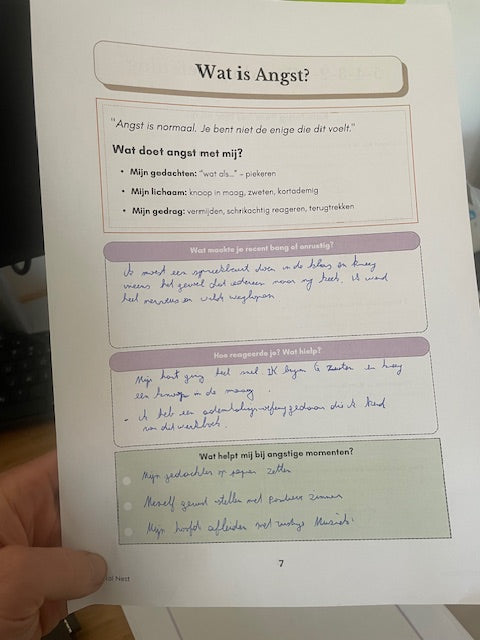 Wat is Angst?
"Angst is normaal. Je bent niet de enige die dit voelt."
Wat doet angst met mij?
• Mijn gedachten: "wat als..." – piekeren
• Mijn lichaam: knoop in maag, zweten, kortademig
• Mijn gedrag: vermijden, schrikachtig reageren, terugtrekken
Wat maakte je recent bang of onrustig?
Ik moest een spreekbeurt doen in de klas en kreeg
ineens het gevoel dat iedereen naar mij keek. Ik werd
heel nerveus en wilde weglopen
Hoe reageerde je? Wat hielp?
Mijn hart ging heel snel ik begon te zweten en kreeg
een knoop in de maag.
- Ik heb een ademhalingsoefening gedaan die ik
van dit werkboek.
Wat helpt mij bij angstige momenten?
Mijn gedachten op papier zetten
Mezelf gerust stellen met zinnen
Mijn hoofd afleiden met rustige Muziek.
7
Nest